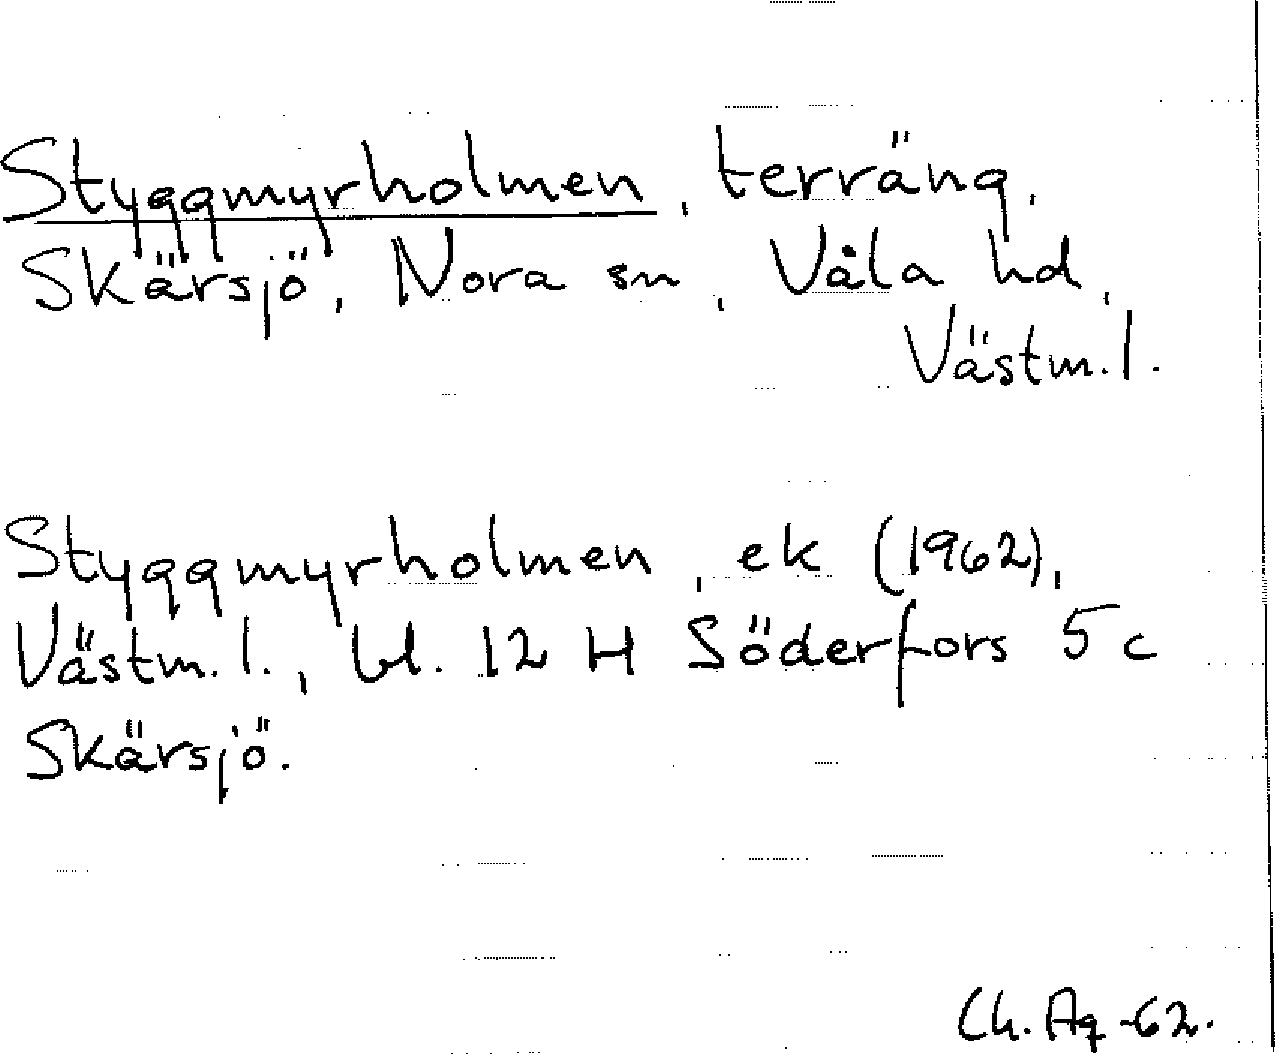 Styggmyrholmen, terräng,
Skärsjö, Nora sn, Våla hd,
Västm. l.
Styggmyrholmen, ek (1962),
Västm. l., bl. 12 H Söderfors 5 c
Skärsjö.
Ch. Ag -62.